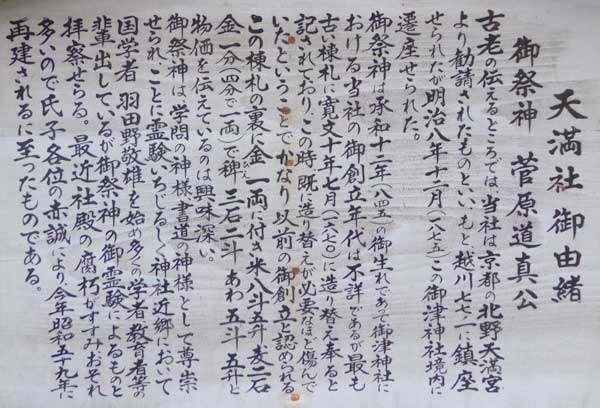 天満社 御由緒
御祭神 菅原道真公
古老の伝えるところでは、当社は京都の北野天満宮
より勧請されたものといい、もと、越川七七一に鎮座
せられたが明治八年十二月(一八七五)この御津神社境内に
遷座せられた。
御祭神は承和十二年(八四五)の御生れであって御津神社に
おける当社の御創立年代は不詳であるが最も
古い棟札に寛文十年七月(一六七〇)に造り替え奉ると
記されており、この時既に造り替えが必要なほど傷んで
いたということで、かなり以前の御創立と認められる
この棟札の裏に金一両に付き米八斗五升麦二石
金一分(四分で一両)で稗 三石二斗 あわ 五斗 五升と
物価を伝えているのは興味深い。
御祭神は、学問の神様、書道の神様として尊崇
せられ、ことに霊験いちじるしく、神社近郷において
国学者 羽田野敬雄を始め多くの学者教育者等の
輩出しているが御祭神の御霊験によるものと
拝察せらる。最近社殿の腐朽がすすみおそれ
多いので氏子各位の赤誠により、今年昭和五十九年に
再建されるに至ったものである。